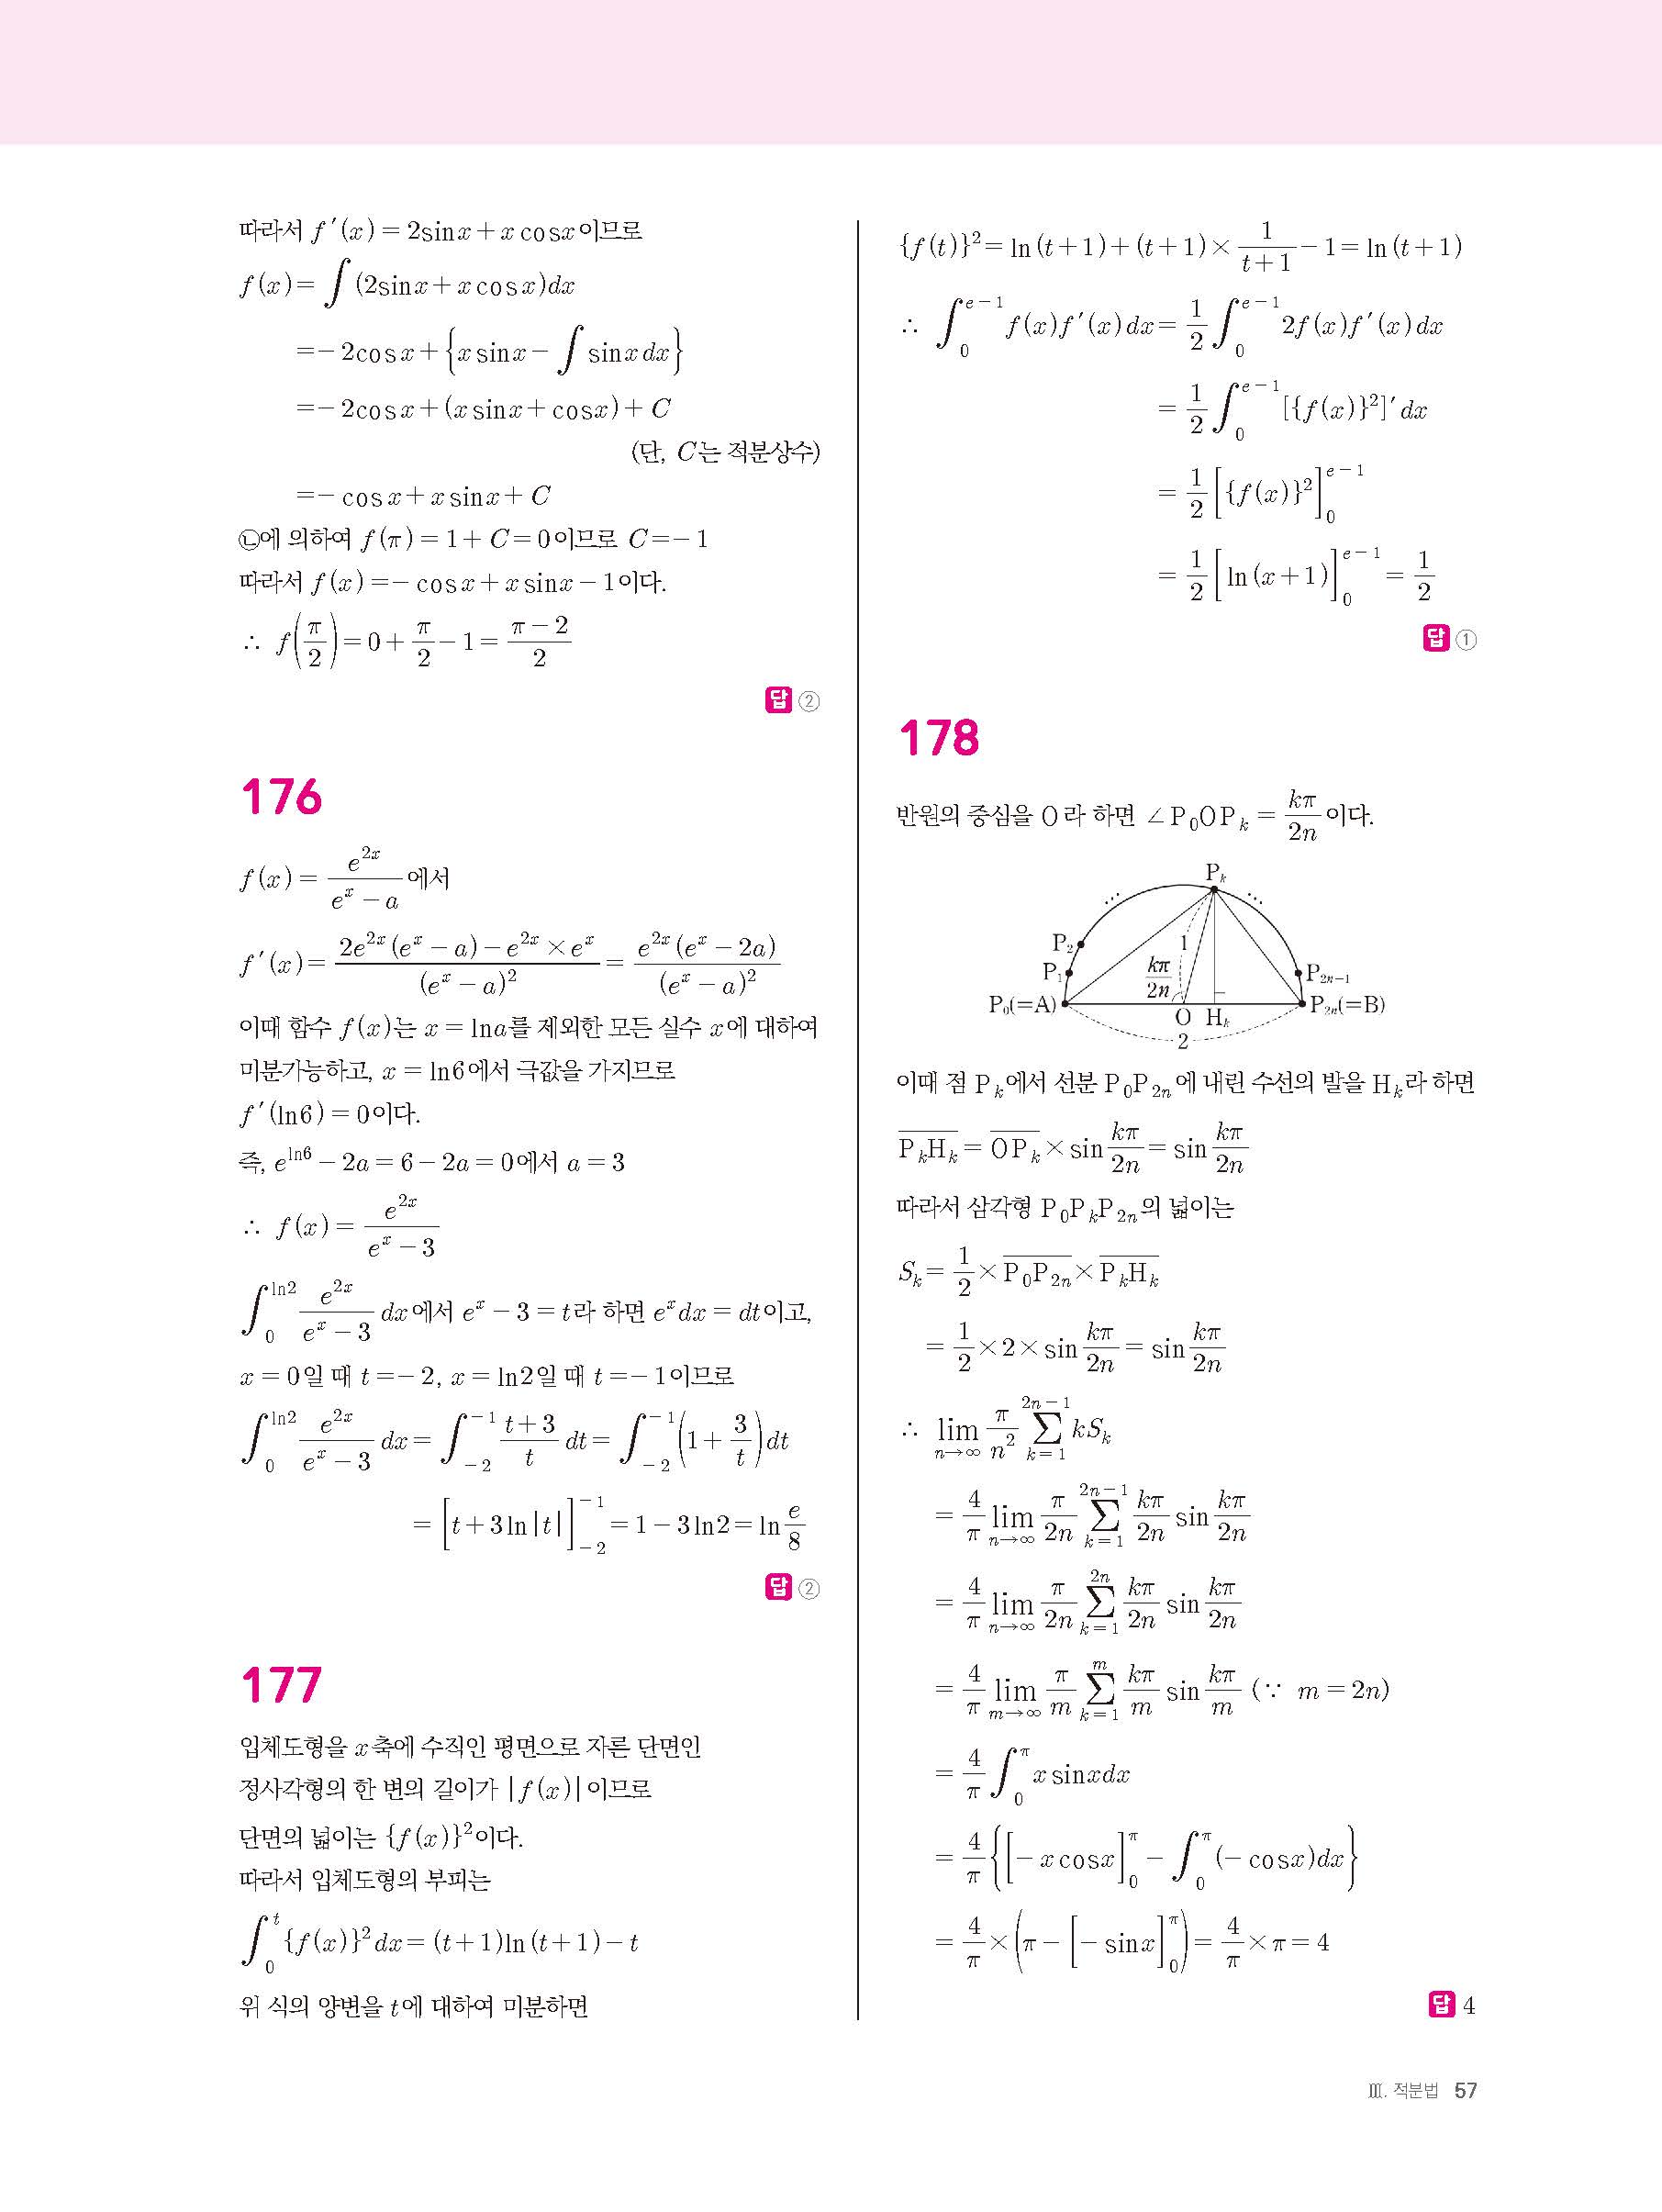 따라서 f′(x) = 2sinx + xcosx이므로
f(x) = ∫(2sinx + xcosx)dx
= −2cosx + {xsinx − ∫sinxdx}
= −2cosx + (xsinx + cosx) + C
(단, C는 적분상수)
= −cosx + xsinx + C
㉡에 의하여 f(π) = 1 + C = 0이므로 C = −1
따라서 f(x) = −cosx + xsinx − 1이다.
∴ f(π/2) = 0 + π/2 − 1 = (π−2)/2
답 ②
176
f(x) = e^{2x}/(e^x − a)에서
f′(x) = {2e^{2x}(e^x − a) − e^{2x} × e^x}/(e^x − a)^2 = e^{2x}(e^x − 2a)/(e^x − a)^2
이때 함수 f(x)는 x = lna를 제외한 모든 실수 x에 대하여
미분가능하고, x = ln6에서 극값을 가지므로
f′(ln6) = 0이다.
즉, e^{ln6} − 2a = 6 − 2a = 0에서 a = 3
∴ f(x) = e^{2x}/(e^x − 3)
∫_0^{ln2} e^{2x}/(e^x − 3) dx에서 e^x − 3 = t라 하면 e^x dx = dt이고,
x = 0일 때 t = −2, x = ln2일 때 t = −1이므로
∫_0^{ln2} e^{2x}/(e^x − 3) dx = ∫_{−2}^{−1} (t+3)/t dt = ∫_{−2}^{−1} (1 + 3/t)dt
= [t + 3ln|t|]_{−2}^{−1} = 1 − 3ln2 = ln e/8
답 ②
177
입체도형을 x축에 수직인 평면으로 자른 단면인
정사각형의 한 변의 길이가 |f(x)|이므로
단면의 넓이는 {f(x)}^2이다.
따라서 입체도형의 부피는
∫_0^t {f(x)}^2 dx = (t+1)ln(t+1) − t
위 식의 양변을 t에 대하여 미분하면
{f(t)}^2 = ln(t+1) + (t+1) × 1/(t+1) − 1 = ln(t+1)
∴ ∫_0^{e−1} f(x)f′(x)dx = 1/2 ∫_0^{e−1} 2f(x)f′(x)dx
= 1/2 ∫_0^{e−1} [{f(x)}^2]′dx
= 1/2 [{f(x)}^2]_0^{e−1}
= 1/2 [ln(x+1)]_0^{e−1} = 1/2
답 ①
178
반원의 중심을 O라 하면 ∠P_0OP_k = kπ/2n이다.
P_k
⋯ ⋯
P_2 1
P_1 kπ/2n P_{2n−1}
P_0(=A) O H_k P_{2n}(=B)
2
이때 점 P_k에서 선분 P_0P_{2n}에 내린 수선의 발을 H_k라 하면
\overline{P_kH_k} = \overline{OP_k} × sin kπ/2n = sin kπ/2n
따라서 삼각형 P_0P_kP_{2n}의 넓이는
S_k = 1/2 × \overline{P_0P_{2n}} × \overline{P_kH_k}
= 1/2 × 2 × sin kπ/2n = sin kπ/2n
∴ lim_{n→∞} π/n^2 ∑_{k=1}^{2n−1} kS_k
= 4/π lim_{n→∞} π/2n ∑_{k=1}^{2n−1} kπ/2n sin kπ/2n
= 4/π lim_{n→∞} π/2n ∑_{k=1}^{2n} kπ/2n sin kπ/2n
= 4/π lim_{m→∞} π/m ∑_{k=1}^{m} kπ/m sin kπ/m (∵ m = 2n)
= 4/π ∫_0^π xsinxdx
= 4/π {[−xcosx]_0^π − ∫_0^π (−cosx)dx}
= 4/π × (π − [−sinx]_0^π) = 4/π × π = 4
답 4
Ⅲ. 적분법 57